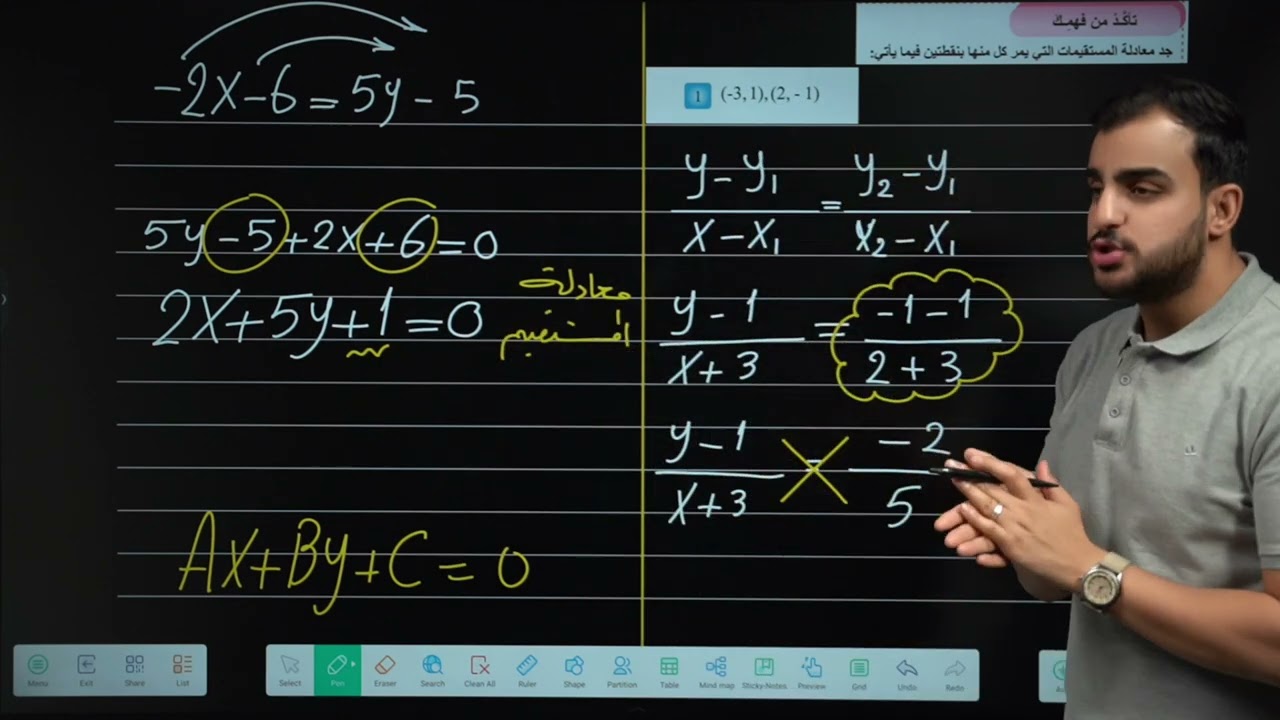 تأكّد من فهمك
جد معادلة المستقيمات التي يمر كل منها بنقطتين فيما يأتي:
1 (-3, 1), (2, - 1)
y - y₁ / x - x₁ = y₂ - y₁ / x₂ - x₁
y - 1 / x + 3 = -1 - 1 / 2 + 3
y - 1 / x + 3 = - 2 / 5
-2x - 6 = 5y - 5
5y - 5 + 2x + 6 = 0
2x + 5y + 1 = 0
معادلة
المستقيم
Ax + By + C = 0
Menu Exit Share List
Select Pen Eraser Search Clean All Ruler Shape Partition Table Mind map Sticky-Notes Preview Grid Undo Redo